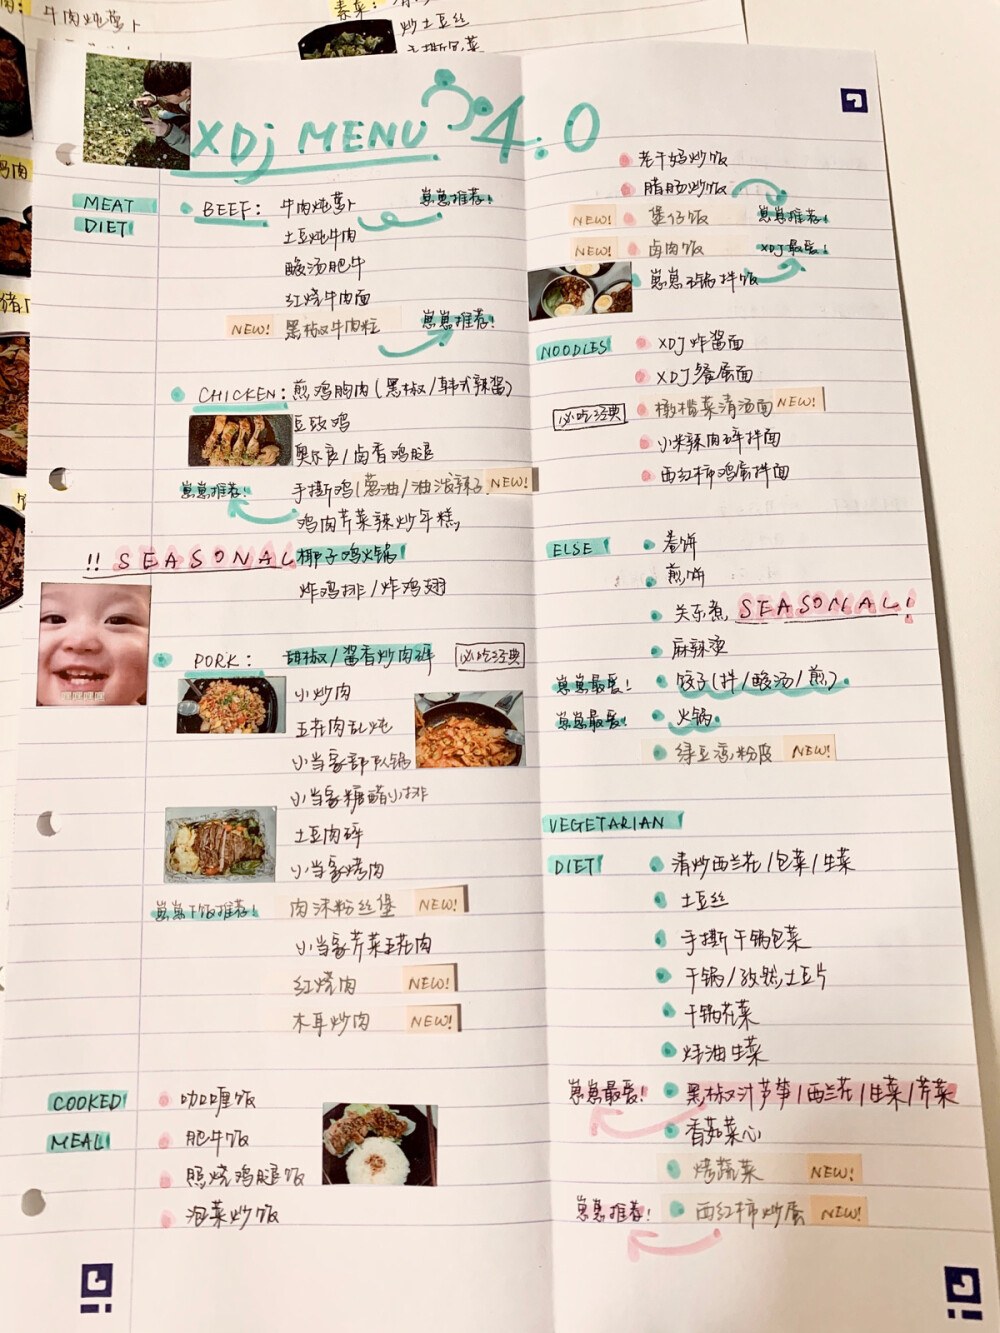 牛肉炖萝卜
素菜:
炒土豆丝
手撕包菜
XDj MENU 4.0
MEAT
DIET
BEEF: 牛肉炖萝卜 崽崽推荐!
土豆炖牛肉
酸汤肥牛
红烧牛肉面
NEW! 黑椒牛肉粒 崽崽推荐!
CHICKEN: 煎鸡胸肉(黑椒/韩式辣酱)
豆豉鸡
奥尔良/卤香鸡腿
崽崽推荐! 手撕鸡(葱油/油泼辣子 NEW!
鸡肉芹菜辣炒年糕
!! SEASONAL 椰子鸡火锅
炸鸡排/炸鸡翅
PORK: 胡椒/酱香炒肉碎 必吃经典
小炒肉
五花肉乱炖
小当家部队锅
小当家糖醋小排
土豆肉碎
小当家烤肉
崽崽下饭推荐! 肉沫粉丝煲 NEW!
小当家芹菜五花肉
红烧肉 NEW!
木耳炒肉 NEW!
COOKED
MEAL
咖喱饭
肥牛饭
照烧鸡腿饭
泡菜炒饭
老干妈炒饭
腊肠炒饭
NEW! 煲仔饭 崽崽推荐!
NEW! 卤肉饭 XDJ最爱!
崽崽石锅拌饭
NOODLES XDJ炸酱面
XDJ餐蛋面
必吃经典 橄榄菜清汤面 NEW!
小米辣肉碎拌面
西红柿鸡蛋拌面
ELSE 卷饼
煎饼
关东煮 SEASONAL!
麻辣烫
崽崽最爱! 饺子(拌/酸汤/煎)
崽崽最爱! 火锅
绿豆湾粉皮 NEW!
VEGETARIAN
DIET 清炒西兰花/包菜/生菜
土豆丝
手撕干锅包菜
干锅/孜然土豆片
干锅花菜
蚝油生菜
崽崽最爱! 黑椒汁芦笋/西兰花/生菜/芹菜
香菇菜心
烤蔬菜 NEW!
崽崽推荐! 西红柿炒蛋 NEW!